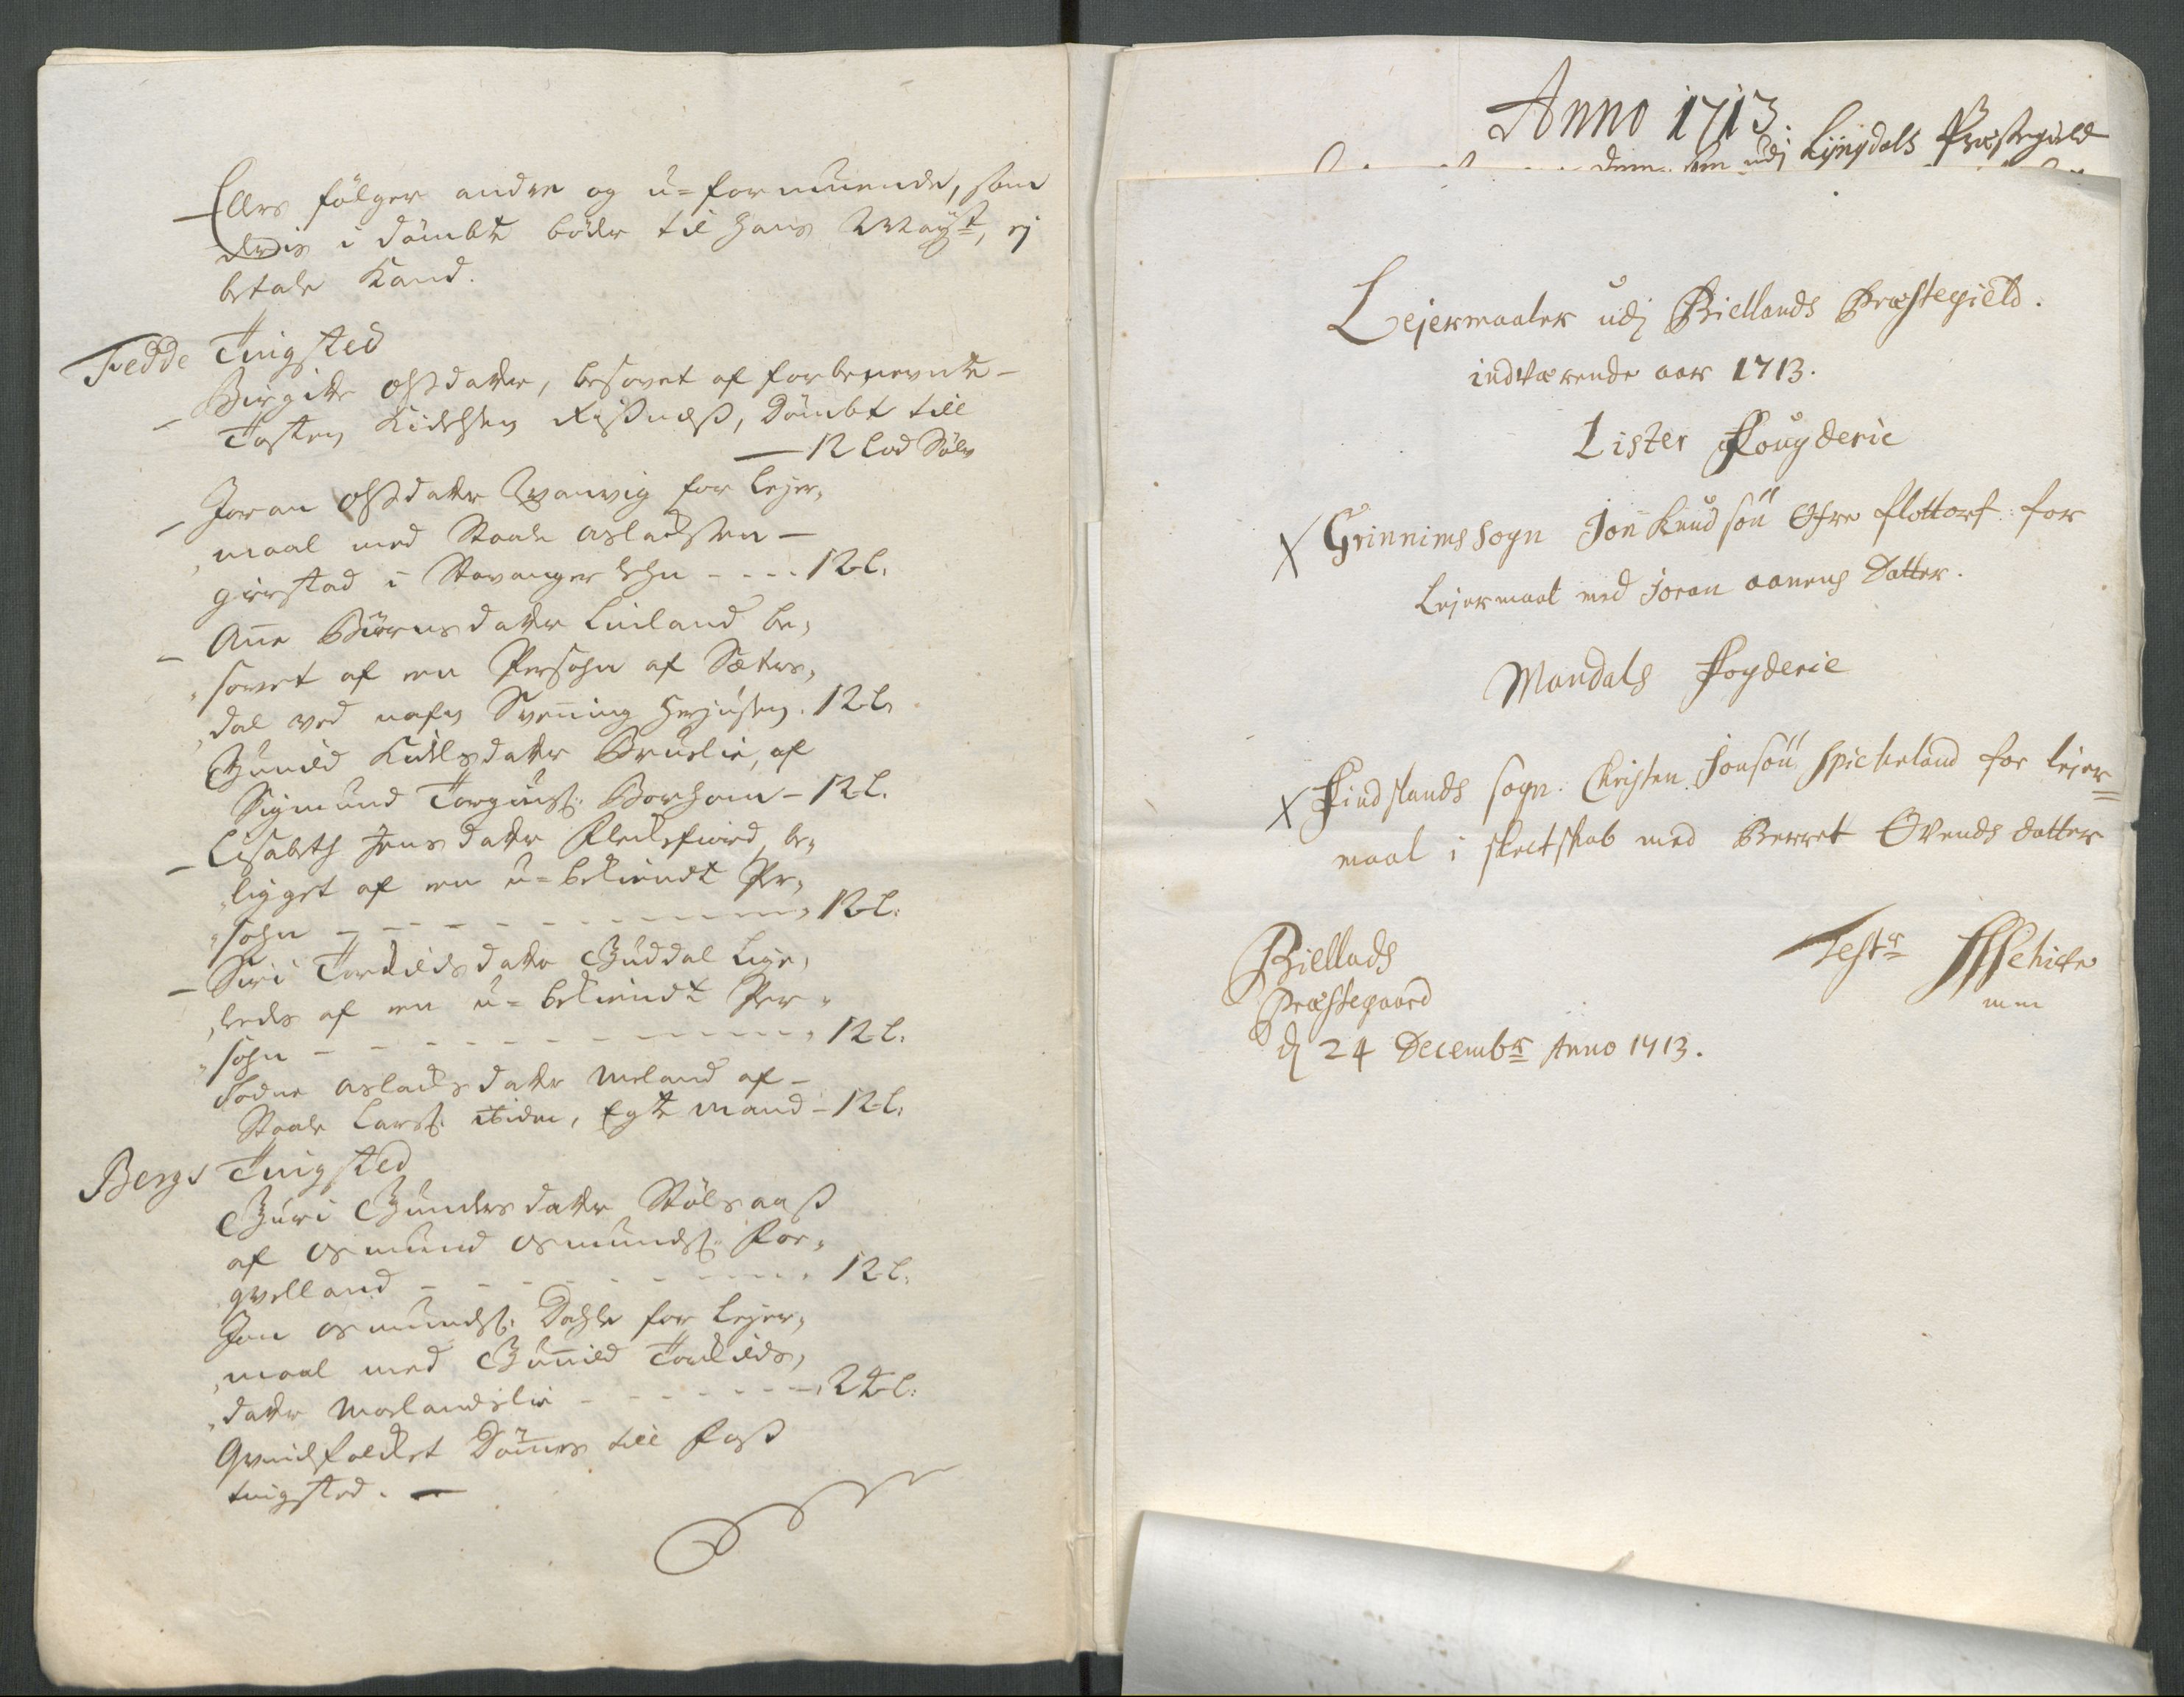 Ellers fölger andre og u-formuende, som
deris i dömbte böder til Hans Mayst, ej
betale Kand.
Fedde Tingsted
Birgitte Olsdatter, besovet af forbenevnte
Tosten Kidelsen, Dömbt till
12 Lod Sölv
Joran Olsdatter Qvanvig for Lejer,
maal med Staale Aslachsen
girstad i Stavanger Lehn - - - - 12 l.
Ane Biörnsdatter Linland be,
sovet af een Persohn af Sæters,
dal ved nafn Svening Herjusen. 12 l.
Gunild Kidelsdatter Bruslie, af
Sigmund Torgiusß: Borham - 12 l.
Lisabeth Jensdatter Fleckefiord, be,
ligget af een u-bekiendt Per,
sohn - - - - - - 12 l:
Siri Torkildsdatter Guddal Lige,
leeds af een u-bekiendt Per,
sohn - - - - - - 12 l.
Todne Aslachsdatter Meland af
Staale Larsß: ibidem, Egte Mand - 12 l:
Bergs Tingsted
Guri Gundersdatter Stölsaaß
af Osmund Osmundsß: For,
qvelland - - - - - - 12 l.
Jon Osmundsß: Dahle for Lejer,
maal med Gunild Torkilds,
datter Moelandslie - - - - - - 24 l:
Qvindfolcket Dömes till Faß
tingsted.
Anno 1713.
udj Lyngdals Præstegield
Lejermaaler udj Biellands Præstegield.
indværende aar 1713.
Lister Fougderie
X Grinnims Sogn Jon Knudsön Öfre flottorf: for
Lejermaal med Joran Aanens Datter.
Mandals Fogderie
X Findslands sogn. Christen Jonsön Spickeland for lejer=
maal i slectskab med Berret Evends datter
Biellads
Præstegaard
d 24 Decembr Anno 1713.
Testr
mm